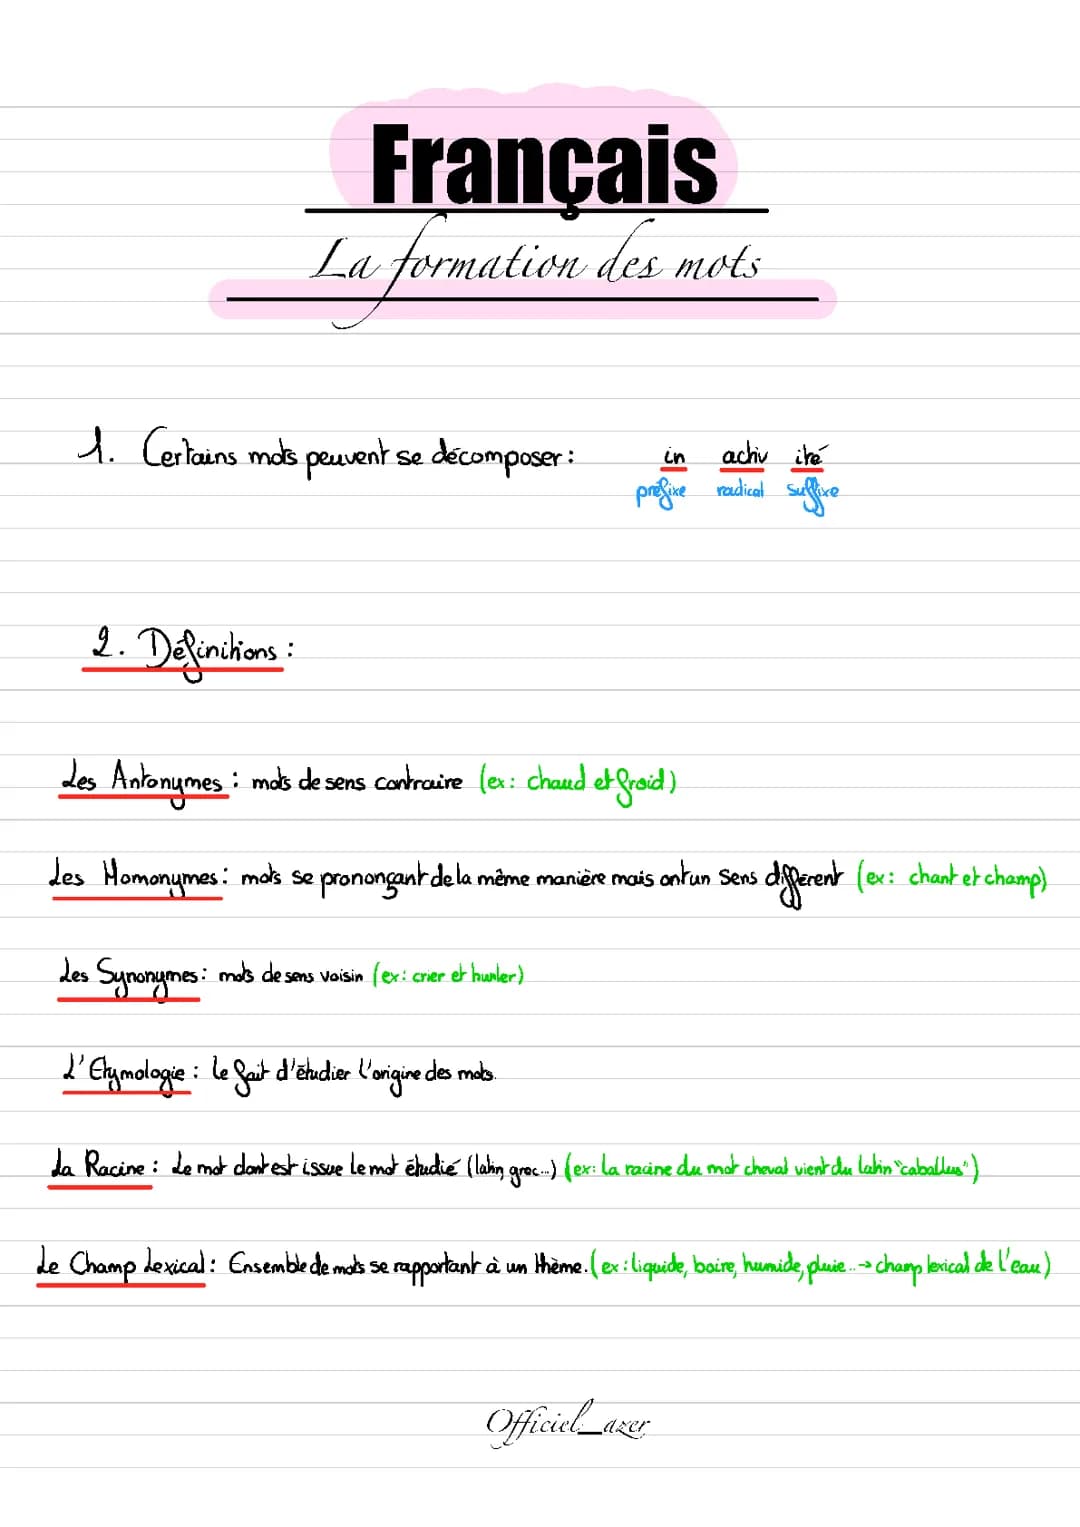 Français
La formation des mots
1. Certains mots peuvent se décomposer : in activ ité
préfixe radical suffixe
2. Définitions :
Les Antonymes : mots de sens contraire (ex : chaud et froid)
Les Homonymes : mots se prononçant de la même manière mais ont un sens différent (ex : chant et champ)
Les Synonymes : mots de sens voisin (ex : crier et hurler)
L'Etymologie : le fait d'étudier l'origine des mots.
La Racine : Le mot dont est issue le mot étudié (latin, grec...) (ex : La racine du mot cheval vient du latin "caballus")
Le Champ Lexical : Ensemble de mots se rapportant à un thème. (ex : liquide, boire, humide, pluie...→ champ lexical de l'eau)
Officiel_azer